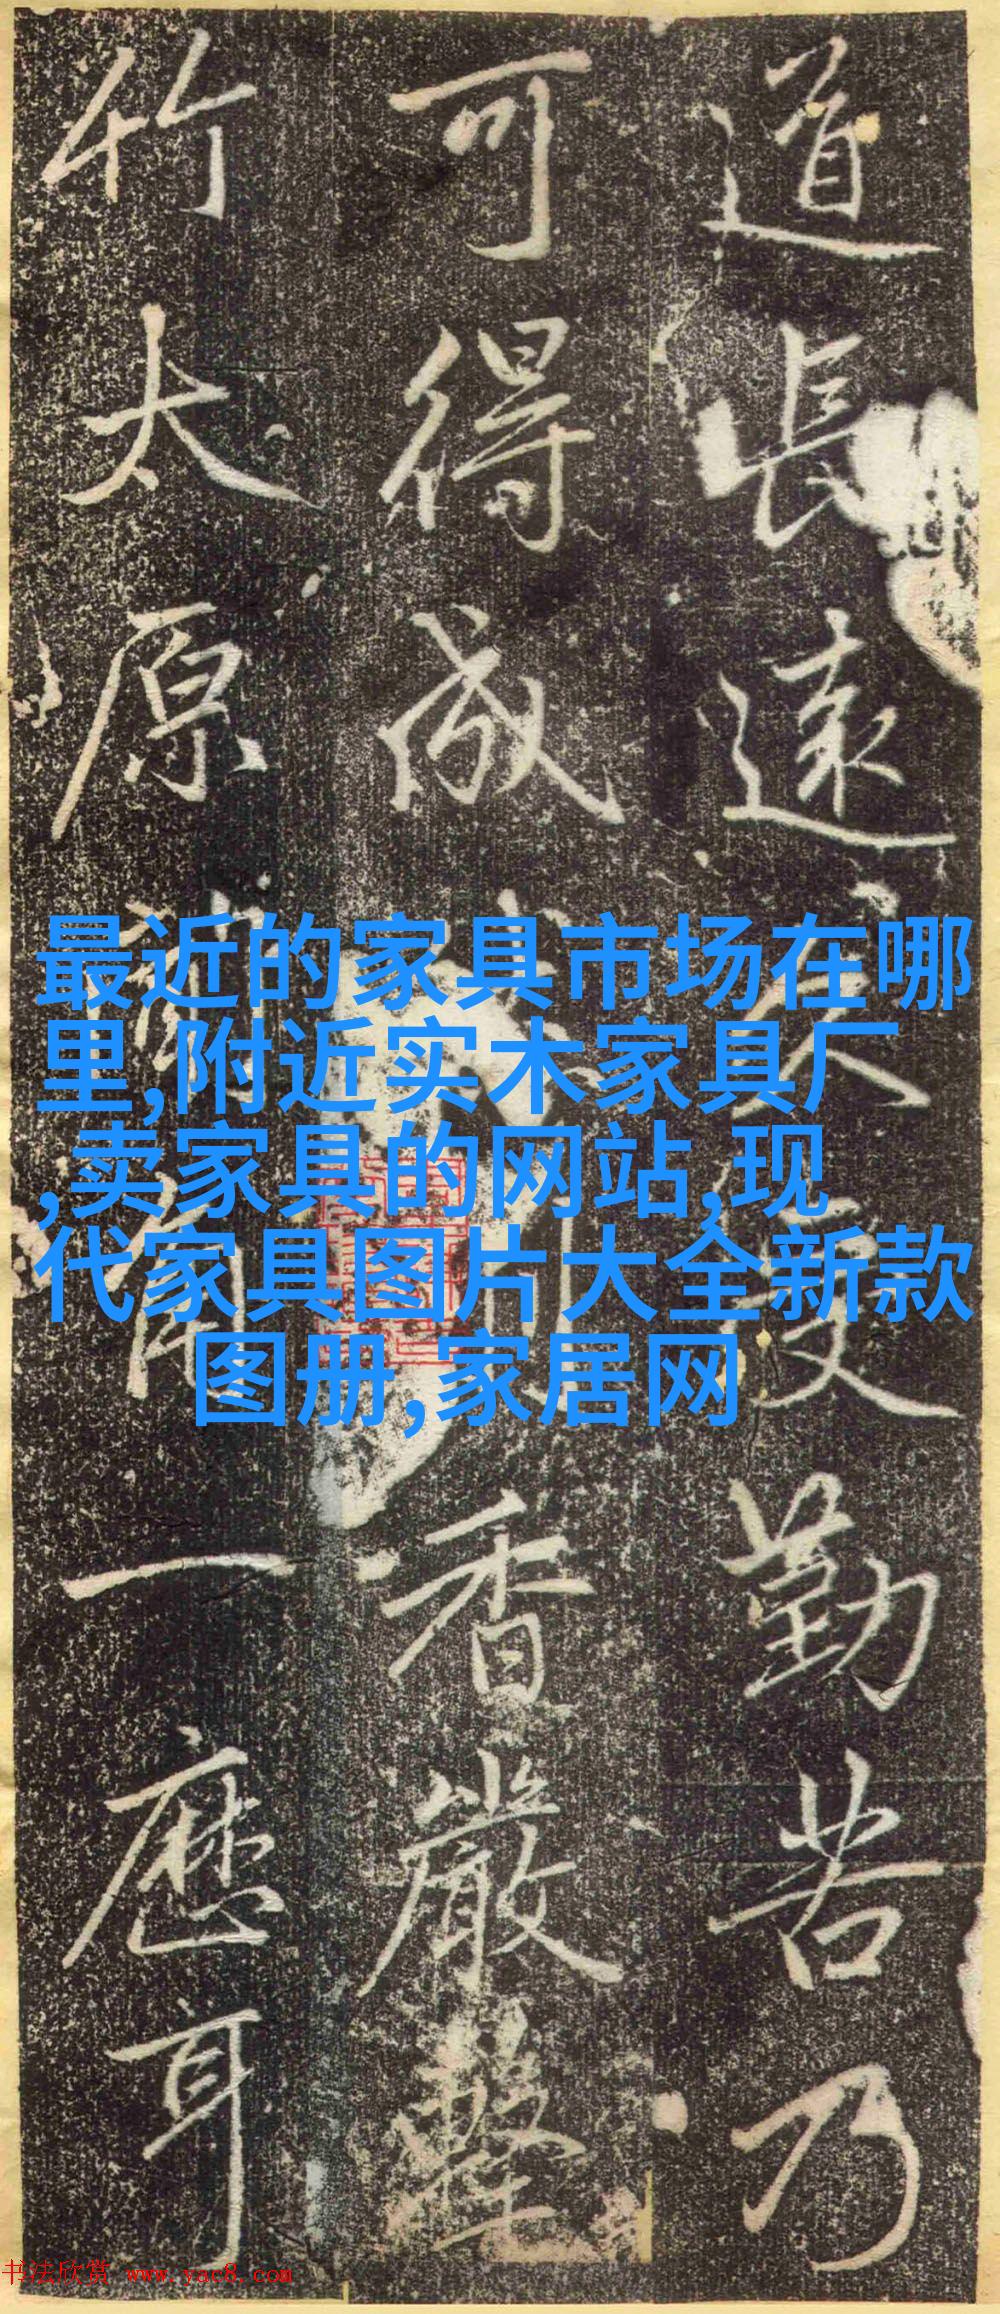 道長遠久受勤苦乃
可得成香嚴擊
竹太原聞角一應耳
最近的家具市场在哪
里,附近实木家具厂
,卖家具的网站,现
代家具图片大全新款
图册,家居网
书法欣赏 www.yac8.com